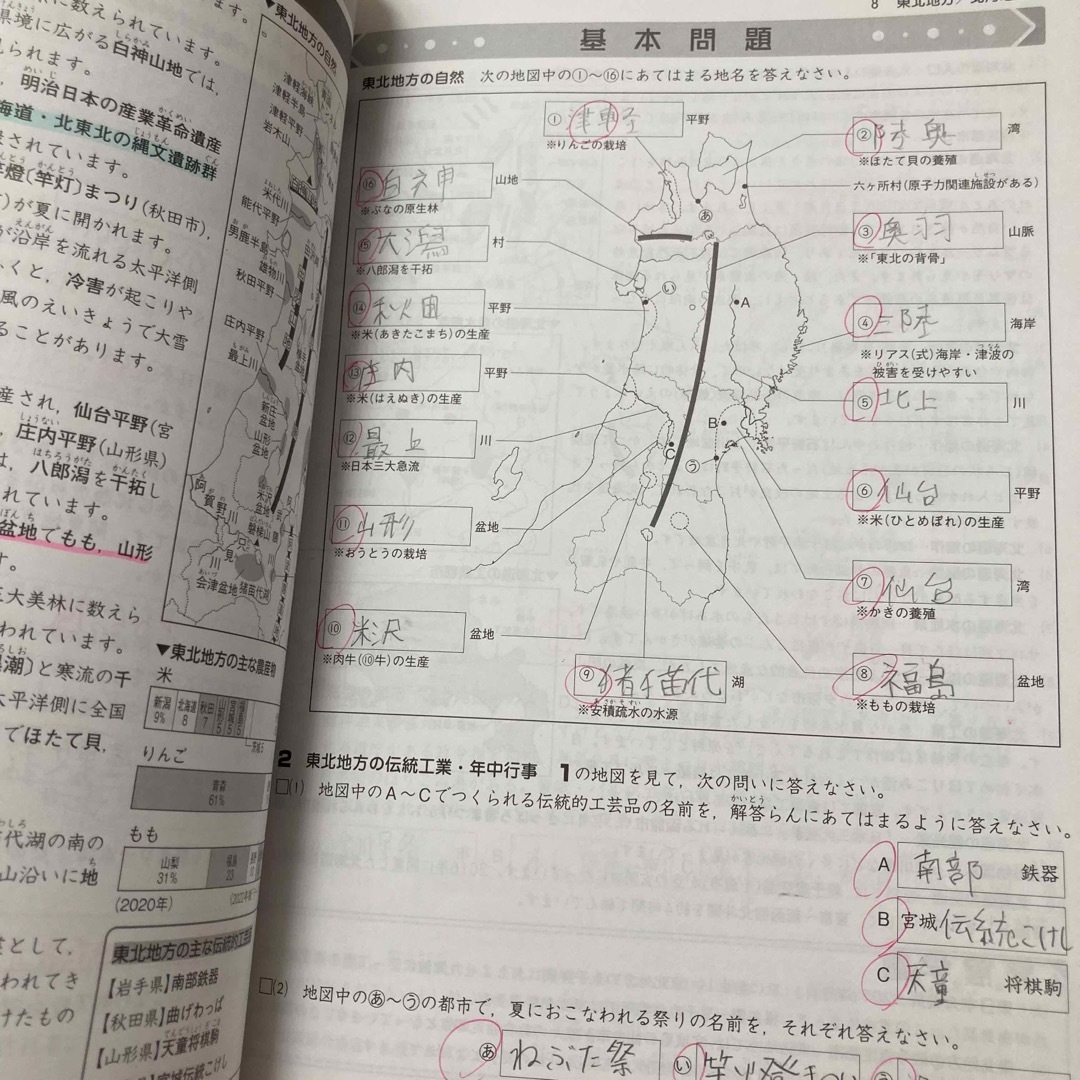 に数えられています。
県境に広がる白神山地では,
られます。
明治日本の産業革命遺産
海道・北東北の縄文遺跡群
されています。
竿燈(竿灯)まつり(秋田市),
が夏に開かれます。
が沿岸を流れる太平洋側
くと,冷害が起こりや
風のえいきょうで大雪
ることがあります。
産され,仙台平野(宮
庄内平野(山形県)
は,八郎潟を干拓し
れています。
盆地でもも,山形
す。
三大美林に数えら
われています。
潮)と寒流の干
太平洋側に全国
でほたて貝,
代湖の南の
山沿いに地
として,
われてき
けたもの
▼東北地方の自然
津軽海峡
津軽半島
津軽平野
岩木山
米代川
能代平野
男鹿半島
雄物川
秋田平野
庄内平野
最上川
新庄盆地
山形盆地
米沢盆地
阿賀野川
磐梯山
只見川
会津盆地
猪苗代湖
▼東北地方の主な農産物
米
新潟 9%
北海道 8
秋田 7
山形 5
宮城 5
福島 5
茨城 5
りんご
青森 61%
もも
山梨 31%
福島 23
(2020年)
東北地方の主な伝統的工芸
【岩手県】南部鉄器
【秋田県】曲げわっぱ
【山形県】天童将棋駒
宮城伝統こけし
8 東北地方
基本問題
東北地方の自然 次の地図中の①~⑯にあてはまる地名を答えなさい。
① 津軽 平野
※りんごの栽培
② 陸奥 湾
※ほたて貝の養殖
六ヶ所村(原子力関連施設がある)
⑯ 白神 山地
※ぶなの原生林
③ 奥羽 山脈
※「東北の背骨」
⑮ 大潟 村
※八郎潟を干拓
⑭ 秋田 平野
※米(あきたこまち)の生産
④ 三陸 海岸
※リアス(式)海岸・津波の
被害を受けやすい
⑬ 庄内 平野
※米(はえぬき)の生産
⑤ 北上 川
⑫ 最上 川
※日本三大急流
⑥ 仙台 平野
※米(ひとめぼれ)の生産
⑪ 山形 盆地
※おうとうの栽培
⑦ 仙台 湾
※かきの養殖
⑩ 米沢 盆地
※肉牛(⑩牛)の生産
⑨ 猪苗代 湖
※安積疏水の水源
⑧ 福島 盆地
※ももの栽培
あ
い
う
A
B
C
2 東北地方の伝統工業・年中行事 1の地図を見て,次の問いに答えなさい。
□(1) 地図中のA~Cでつくられる伝統的工芸品の名前を,解答らんにあてはまるように答えなさい。
A 南部 鉄器
B 宮城伝統こけし
C 天童 将棋駒
□(2) 地図中のあ~うの都市で,夏におこなわれる祭りの名前を,それぞれ答えなさい。
あ ねぶた祭
い 竿燈まつり